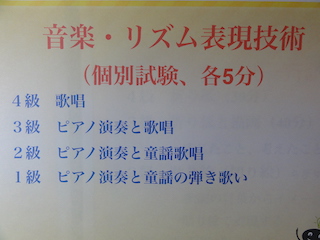 音楽・リズム表現技術
（個別試験、各5分）
４級　歌唱
３級　ピアノ演奏と歌唱
２級　ピアノ演奏と童謡歌唱
１級　ピアノ演奏と童謡の弾き歌い